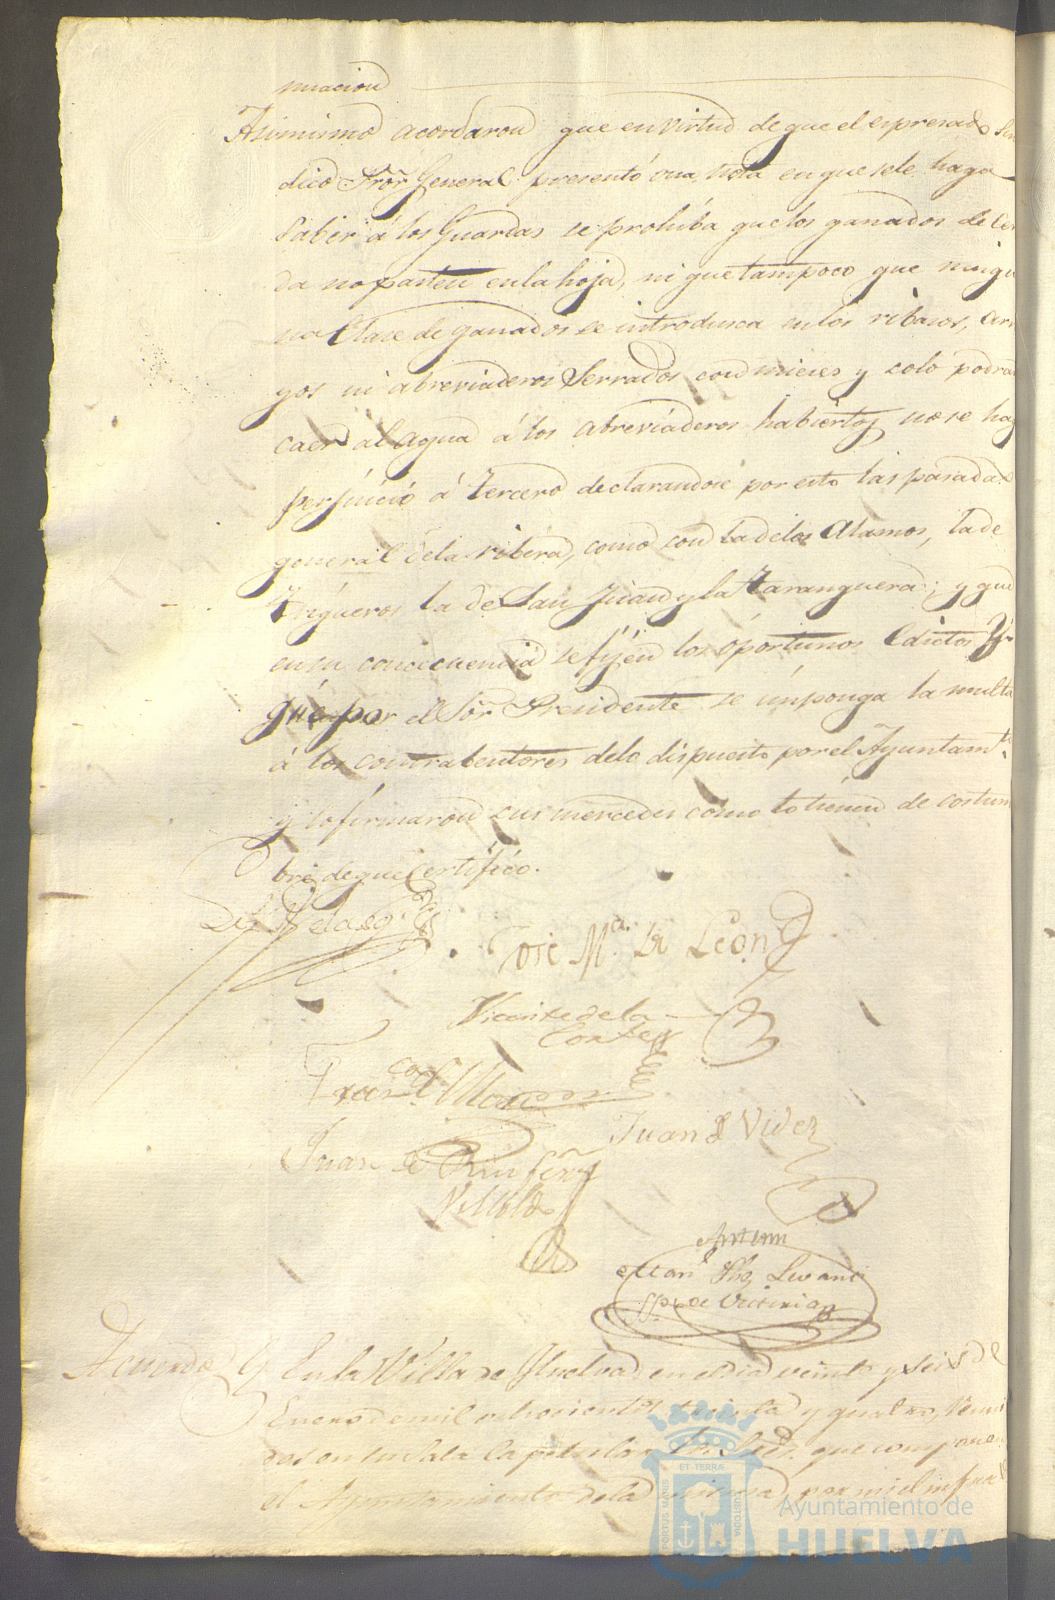 nuacion
Asimismo acordaron que en virtud de que el espresado Sin
dico Pror General presentó una nota en que se le haga
saber á los Guardas se prohiba que los ganados de cer
da no pasten en la hoja, ni que tampoco que ningu
na Clase de ganados se introdusca en los ribasos, arr
yos ni abreviaderos Serrados con mieses y solo podran
caer al agua á los abreviaderos habiertos no se hag
perjuicio á tercero declarandose por esto las pasadas
general de la ribera, como son la de los Alamos, la de
Trigueros la de San Juan y la Taranguera; y que
en su consecuencia se fijen los oportunos Edictos y
que por el Sor Presidente se imponga la multa
á los contrabentores de lo dispuesto por el Ayuntamto.
y lo firmaron sus mercedes como lo tienen de costum
bre de que Certifico.
José Ma. de Leon
Vicente de la
Corte
Juan de Videz
Juan de
Acuerdo En la Villa de Huelva en el dia veinte y seis de
Enero de mil ochocientos treinta y quatro, reuni
dos en su Sala Capitular los Sres. que componen
el Ayuntamiento de la misma, por mi el infra
ET TERRA
PORTUS MARIS
CUSTODIA
Ayuntamiento de
HUELVA